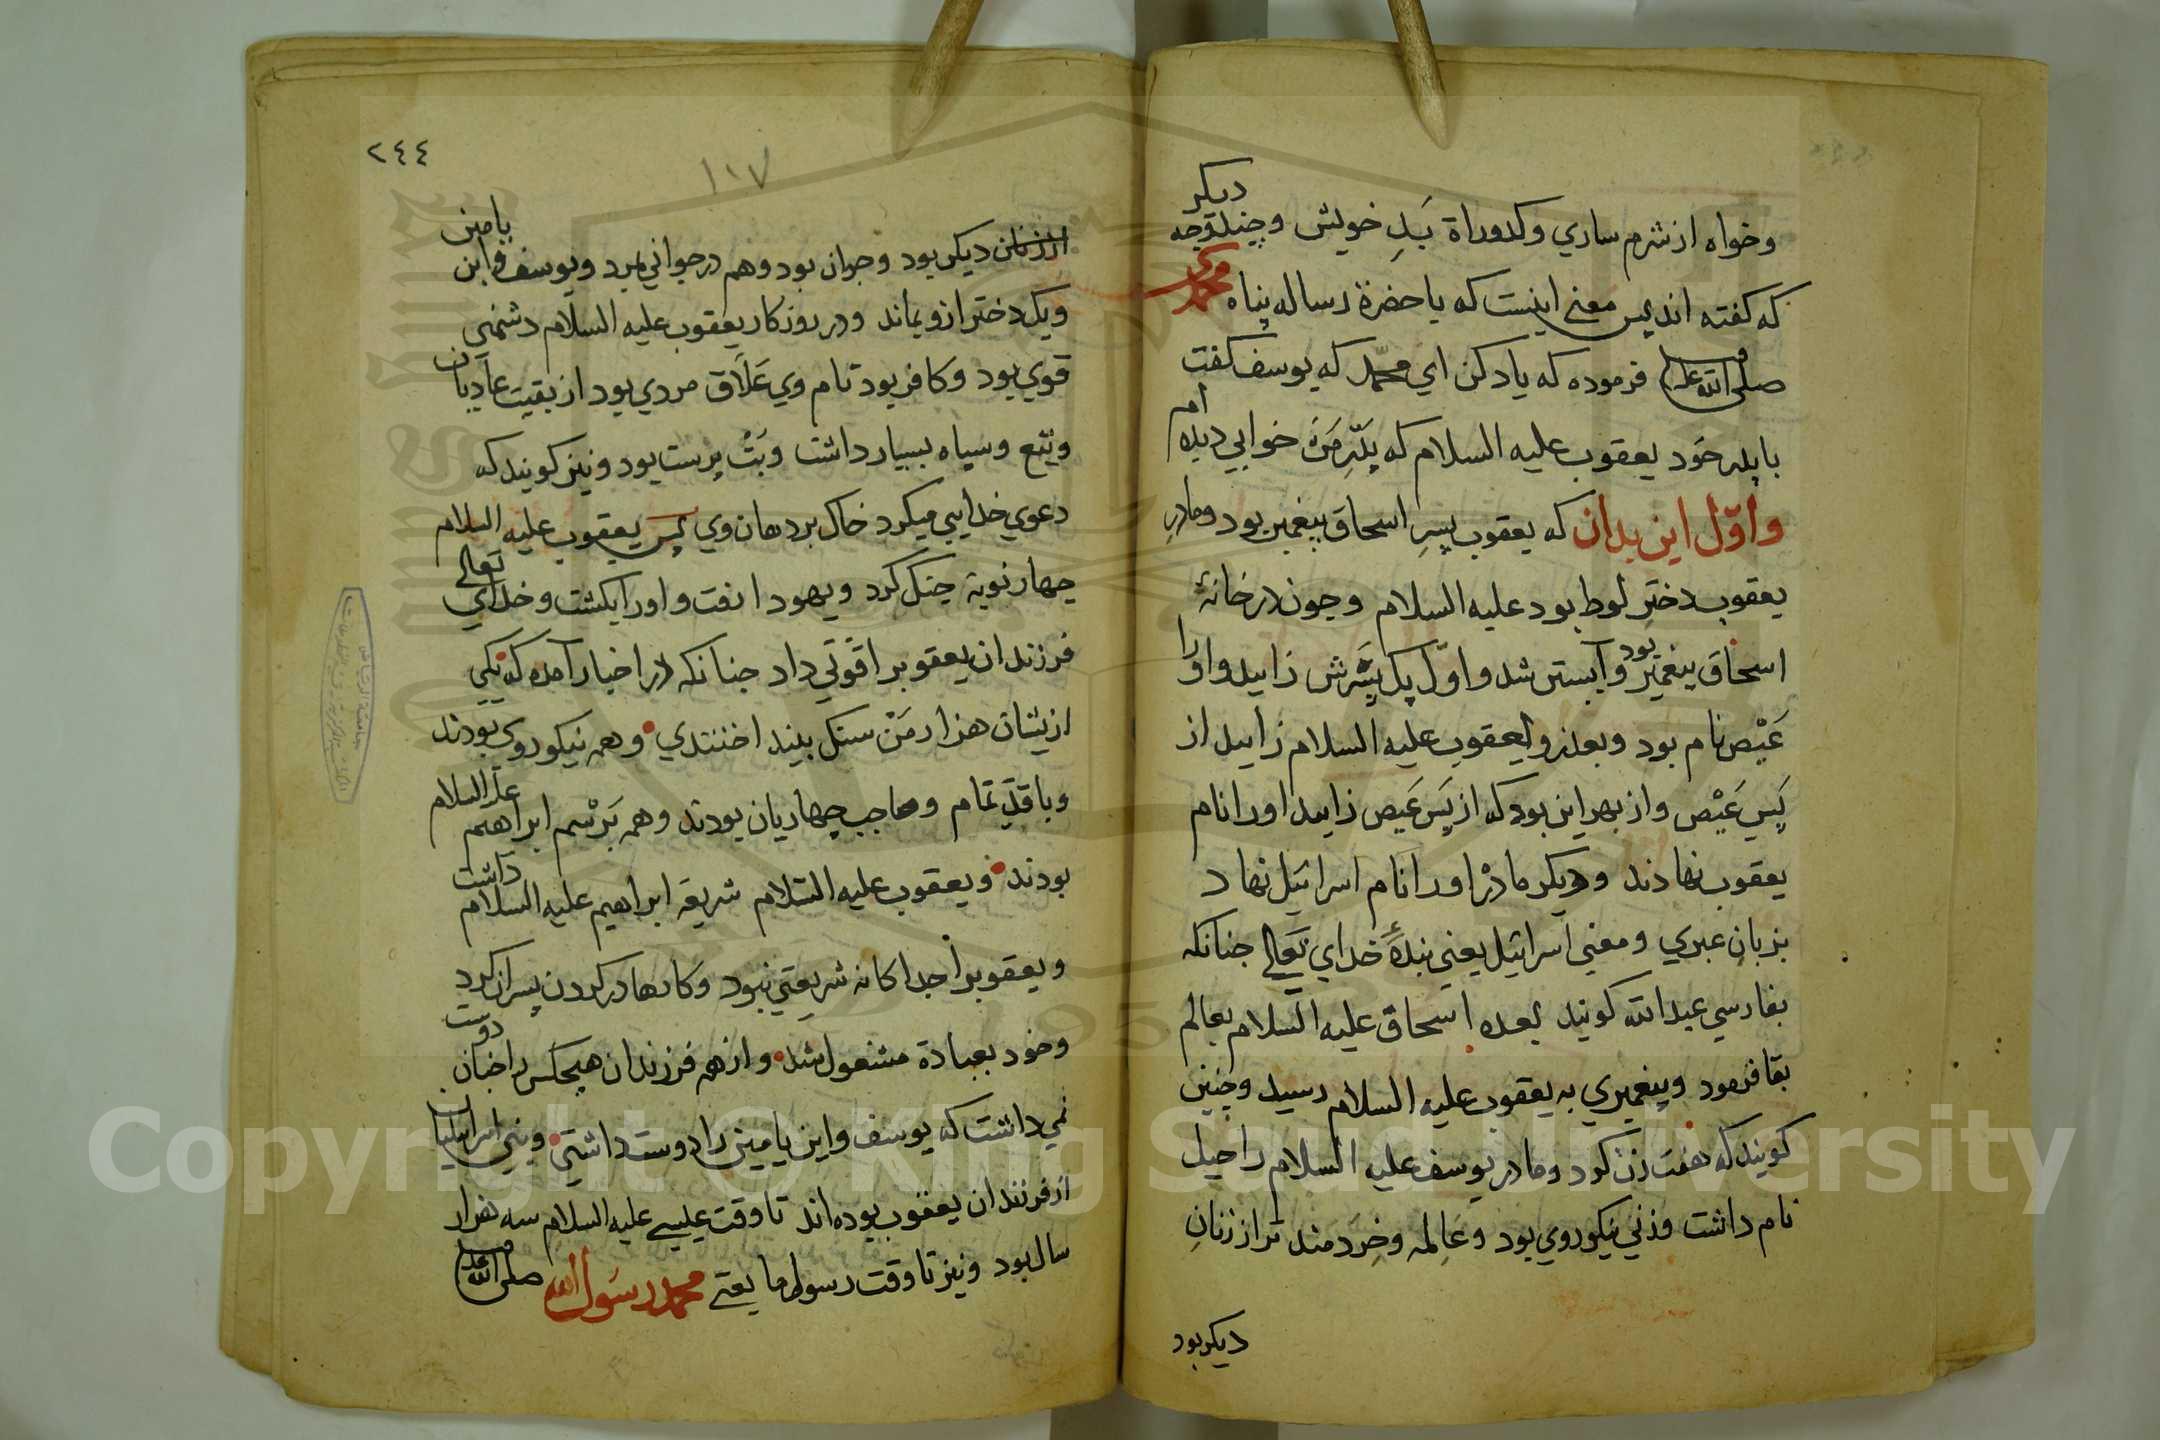 وخواه از شرم ساري وكدوراة بَدِ خويش وچند وجه ديكر
كه كفته اند پس معني اينست كه يا حضرة رساله پناه محمدي
صلى الله عليه فرموده كه ياد كن اي محمّد كه يوسف كفت
با پدر خَود يعقوب عليه السلام كه پَدَرِ مَن خوابي ديده ام
واوّل اين بدان كه يعقوب پسرِ اسحاق پيغمبر بود ومادرِ
يعقوب دخترِ لوط بود عليه السلام وچون در خانهٔ
اسحاق پيغمبر بود وآبستن شد واوّل يك پِسَرش زاييد واو را
عَيْص نام بود وبعد از و يعقوب عليه السلام زاييد از
پَسِ عَيْص واز بهر اين بود كه از پَسِ عَيص زاييد او را نام
يعقوب نهادند وديكر مادرْ او را نام اسرائيل نهاد
بزبانِ عبري ومعني اسرائيل يعني بندهٔ خداي تَعالى چنانكه
بفارسي عبدالله كويند بعده اسحاق عليه السلام بعالم
بقا فرمود وپيغمبري به يعقوب عليه السلام رسيد وچنين
كويند كه هفت زن كرد ومادر يوسف عليه السلام راحيل
نام داشت وزني نيكوروي بود وعَالِمه وخِرَدمند تر از زنانِ
ديكر بود
٢٤٤
١٠٧
از زنان ديكر بود وجوان بود وهم در جواني بمرد ويوسف وابن يامين
ويك دختر ازو بماند ودر روزكار يعقوب عليه السلام دشمني
قوي بود وكافر بود نام وي عَلَاق مردي بود از بقيت عاديان
وتبع وسپاه بسيار داشت وبَتْ پرست بود ونيز كويند كه
دعوي خدايي ميكرد خاك بر دهان وي پس يعقوب عليه السلام
چهار نوبة جنك كرد ويهودا رفت واو را بكشت وخداي تعالى
فرزندان يعقوب را قوّتي داد چنانكه در اخبار آمده كه يكي
ازيشان هزار من سنك بلند اخنتدي وهمه نيكوروي بودند
وبا قَدِّ تمام وصاحب چهاريان بودند وهمه بَرْ سَمِ ابراهيم عليه السلام
بودند ويعقوب عليه السّلام شريعه ابراهيم عليه السلام داشت
ويعقوب را جداكانه شريعتي نبود وكارها در كردن پسران كرد
وخود بعبادة مشغول شد واز همه فرزندان هيچكس را چنان دوست
نمي داشت كه يوسف وابن يامين را دوست داشتي وبني اسرائيليان
از فرزندان يعقوب بوده اند تا وقت عيسى عليه السلام سه هزار
سال بود ونيز تا وقت رسول ما يعني محمد رسول الله صلى الله عليه
Copyright © King Saud University